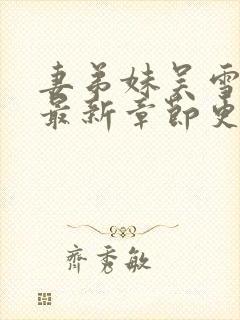 妻弟妹吴雪
最新章節更
齊秀敏